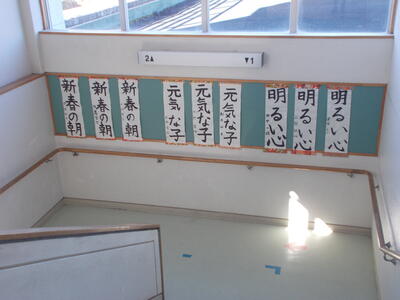 2▲ ▼1
新春の朝
新春の朝
新春の朝
元気な子
元気な子
元気な子
明るい心
明るい心
明るい心